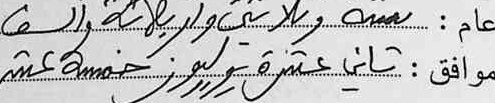 عام : ستة وثلاثين واربعمائة والف
موافق : ثاني عشرة يوليوز خمسة عشر